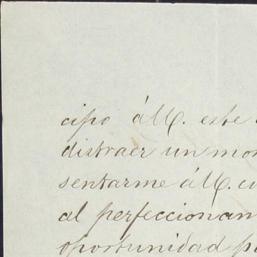 cipo á U. este
distraer un mo
sentarme á U. co
al perfeccionam
oportunidad p